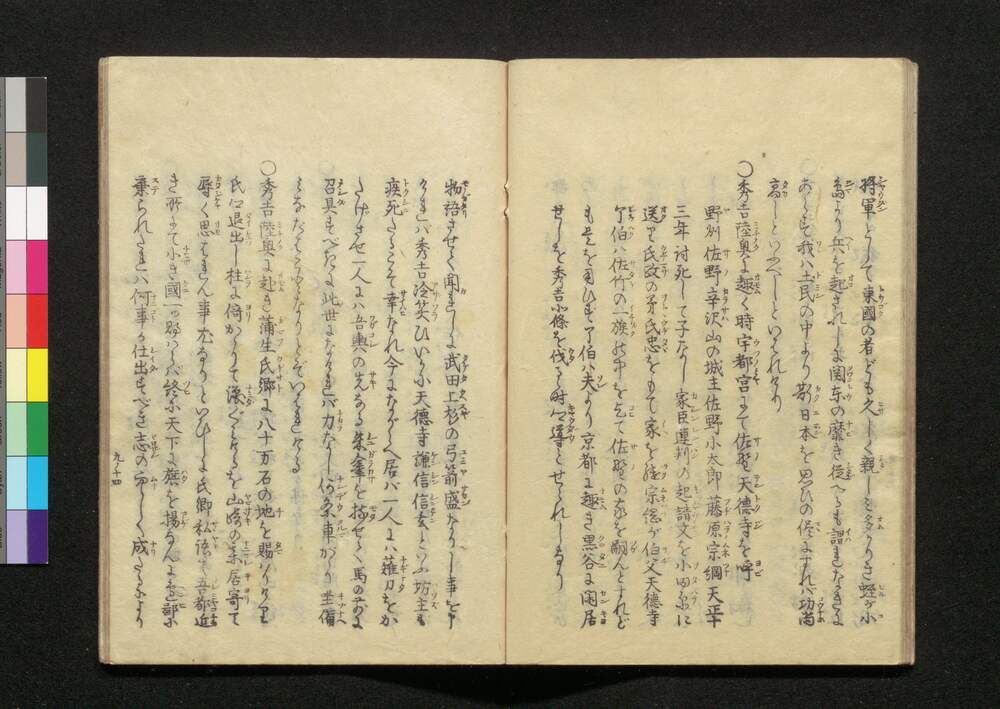 将軍として東國の者ども久しく親しミ多かりき蛭が小
島より兵を起されしに関东の靡き従へるも謂れなきに
あらず我ハ土民の中より斯日本を思ひの侭にすれバ功尚
高しといふべしといはれけり
〇秀吉陸奥に趣く時宇都宮にて佐野天徳寺を呼
野州佐野辛沢山の城主佐野小太郎藤原宗綱天正十
三年討死して子なし家臣連判の起請文を小田原に
送り氏政の弟氏忠をもて家を継宗綱が伯父天徳寺
了伯ハ佐竹の一族の中を乞て佐野の家を嗣んとすれど
も是を用ひず了伯ハ夫より京都に趣き黒谷に閑居
せしを秀吉小條を伐るゝ時導とせられしなり
物語させて聞れしに武田上杉の弓箭盛なりし事を申
けれバ秀吉冷笑ひいや小天徳寺謙信信玄といふ坊主も
疾死たるこそ幸なれ今にながらへ居バ一人にハ薙刀をか
たげさせ一人にハ吾輿の先なる朱傘を持せて馬の前に
召具すべきに此世になけれバ力なし
となりといはれける
〇秀吉陸奥に赴き蒲生氏郷に八十万石の地を賜りけり
氏郷退出し柱に倚かゝりて涙ぐみけるを山崎の某居寄て
辱く思はれん事尤なりといひしに氏郷私語て吾都近
き所にて小き國一つ賜らバ終に天下に旗を揚なんに邊部に
棄られたれバ何事か仕出すべき志の空しく成たるより
九ノ十四